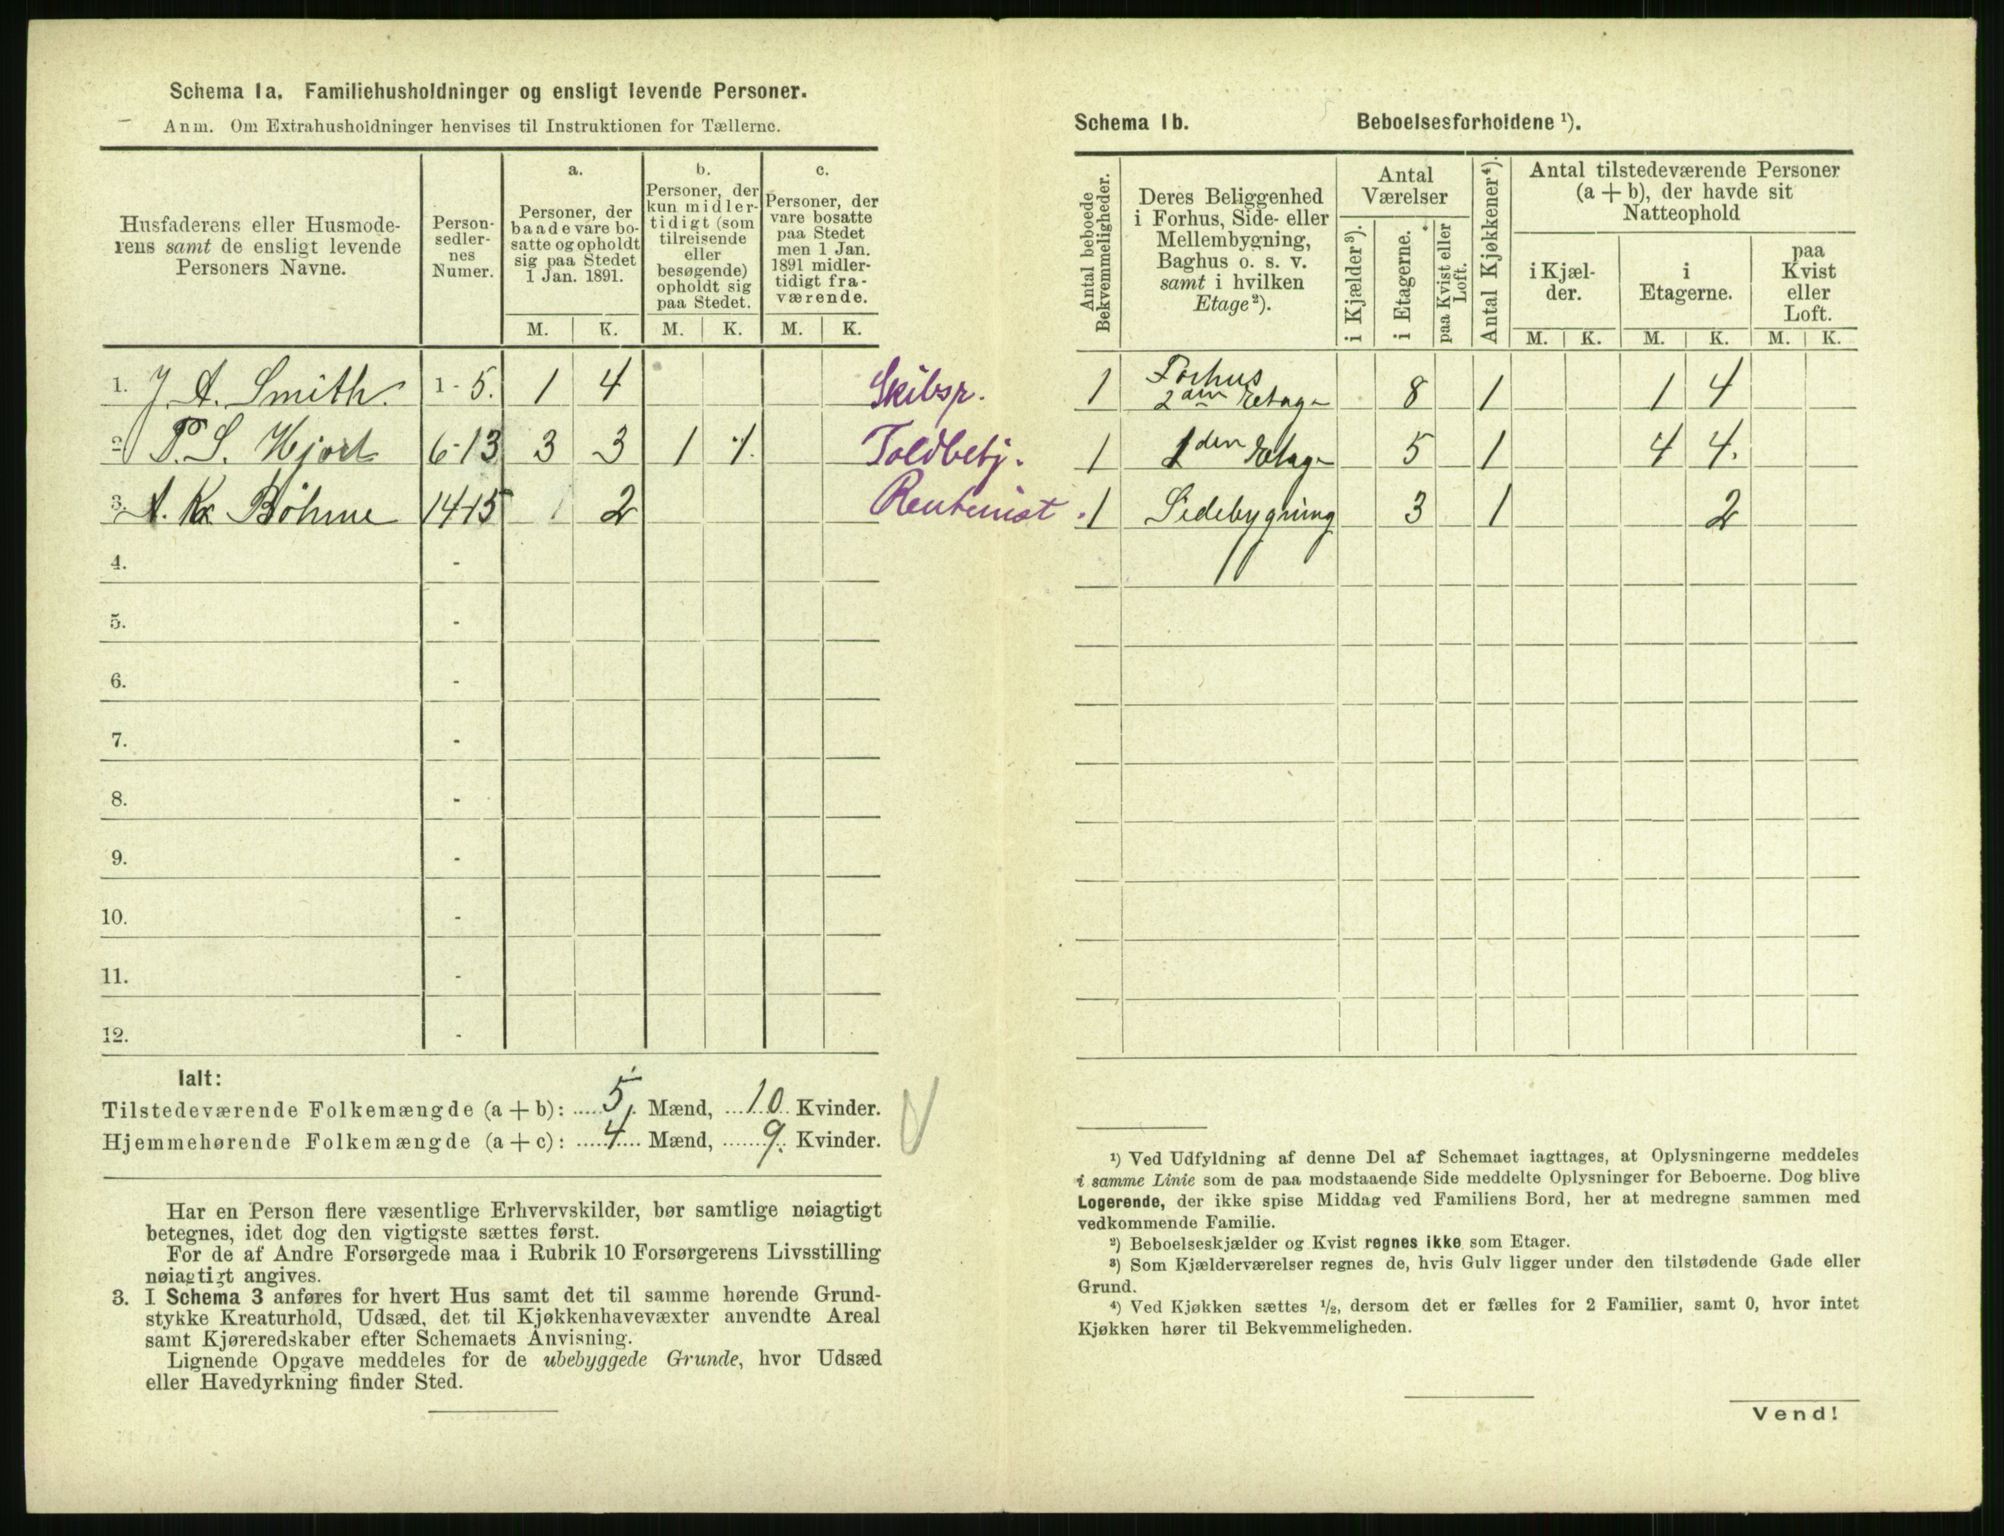 Schema 1a. Familiehusholdninger og ensligt levende Personer.
Anm. Om Extrahusholdninger henvises til Instruktionen for Tællerne.
Husfaderens eller Husmode-
rens samt de ensligt levende
Personers Navne.
Person-
sedler-
nes
Numer.
a.
Personer, der
baade vare bo-
satte og opholdt
sig paa Stedet
1 Jan. 1891.
b.
Personer, der
kun midler-
tidigt (som
tilreisende
eller
besøgende)
opholdt sig
paa Stedet.
c.
Personer, der
vare bosatte
paa Stedet
men 1 Jan.
1891 midler-
tidigt fra-
værende.
M. K. M. K. M. K.
1. J. A. Smith. 1-5. 1 4 Skibsr.
2. P. S. Hjort 6-13 3 3 1 1. Toldbetj.
3. A. K. Böhme 14-15 2 Rentenist
4. -
5. -
6. -
7. -
8. -
9. -
10. -
11. -
12. -
Ialt:
Tilstedeværende Folkemængde (a + b): 5. Mænd, 10 Kvinder.
Hjemmehørende Folkemængde (a + c): 4 Mænd, 9. Kvinder.
Har en Person flere væsentlige Erhvervskilder, bør samtlige nøiagtigt
betegnes, idet dog den vigtigste sættes først.
For de af Andre Forsørgede maa i Rubrik 10 Forsørgerens Livsstilling
nøiagtigt angives.
3. I Schema 3 anføres for hvert Hus samt det til samme hørende Grund-
stykke Kreaturhold, Udsæd, det til Kjøkkenhavevæxter anvendte Areal
samt Kjøreredskaber efter Schemaets Anvisning.
Lignende Opgave meddeles for de ubebyggede Grunde, hvor Udsæd
eller Havedyrkning finder Sted.
Schema 1b. Beboelsesforholdene ¹).
Antal beboede
Bekvemmeligheder.
Deres Beliggenhed
i Forhus, Side- eller
Mellembygning,
Baghus o. s. v.
samt i hvilken
Etage²).
Antal
Værelser
i Kjælder³).
i Etagerne.
paa Kvist eller
Loft.
Antal Kjøkkener⁴).
Antal tilstedeværende Personer
(a + b), der havde sit
Natteophold
i Kjæl-
der.
i
Etagerne.
paa
Kvist
eller
Loft.
M. K. M. K. M. K.
1 Forhus
2den Etage 8 1 1 4
1 1den Etage 5 1 4 4.
1 Sidebygning 3 1 2
¹) Ved Udfyldning af denne Del af Schemaet iagttages, at Oplysningerne meddeles
i samme Linie som de paa modstaaende Side meddelte Oplysninger for Beboerne. Dog blive
Logerende, der ikke spise Middag ved Familiens Bord, her at medregne sammen med
vedkommende Familie.
²) Beboelseskjælder og Kvist regnes ikke som Etager.
³) Som Kjælderværelser regnes de, hvis Gulv ligger under den tilstødende Gade eller
Grund.
⁴) Ved Kjøkken sættes ½, dersom det er fælles for 2 Familier, samt 0, hvor intet
Kjøkken hører til Bekvemmeligheden.
Vend!